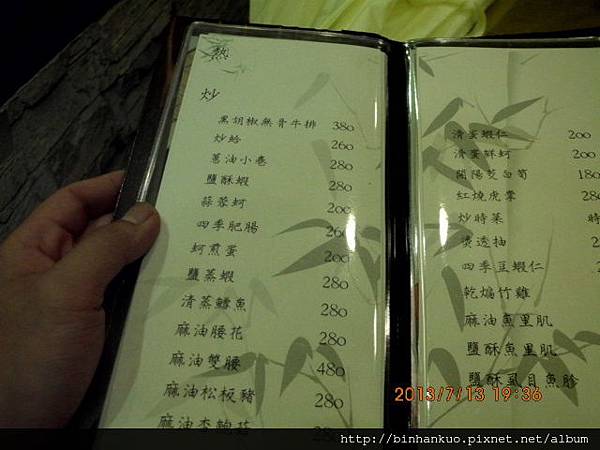 熱
炒
黑胡椒無骨牛排 380
炒蛤 260
蔥油小卷 280
鹽酥蝦 280
蒜蓉蚵 200
四季肥腸 260
蚵煎蛋 200
鹽蒸蝦 280
清蒸鱈魚 280
麻油腰花 280
麻油雙腰 480
麻油松板豬 280
麻油杏鮑菇 28
滑蛋蝦仁 200
滑蛋鮮蚵 200
開陽茭白筍 180
紅燒虎掌 280
炒時菜 時
燙透抽
四季豆蝦仁
乾煸竹雞
麻油魚里肌
鹽酥魚里肌
鹽酥虱目魚肚
2013/7/13 19:36
http://binhankuo.pixnet.net/album